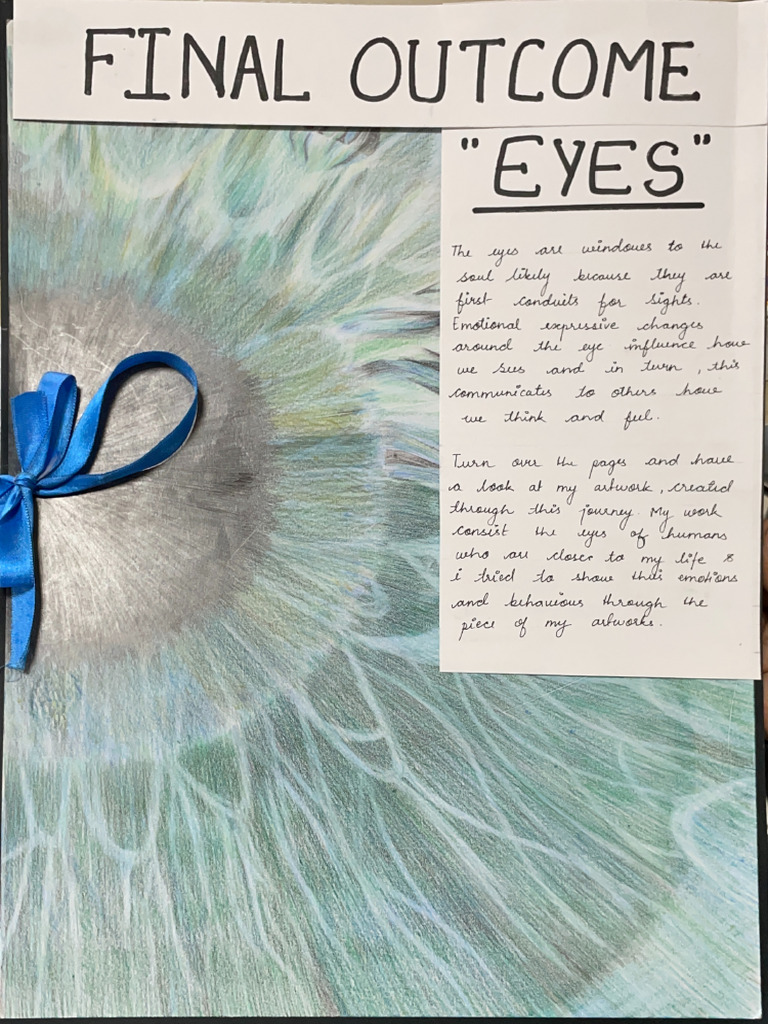 FINAL OUTCOME
"EYES"
The eyes are windows to the
soul likely because they are
first conduits for sights.
Emotional expressive changes
around the eye influence how
we sees and in turn , this
communicates to others how
we think and feel.
Turn over the pages and have
a look at my artwork , created
through this journey. My work
consist the eyes of humans
who are closer to my life &
i tried to show their emotions
and behaviours through the
piece of my artworks.